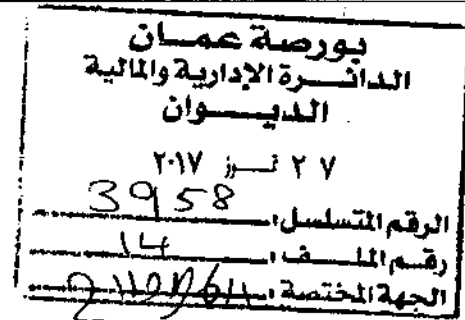 بورصة عمان
الدائرة الإدارية والمالية
الديوان
٢٧ تموز ٢٠١٧
3958
الرقم المتسلسل:
14
رقم الملف:
الجهة المختصة: